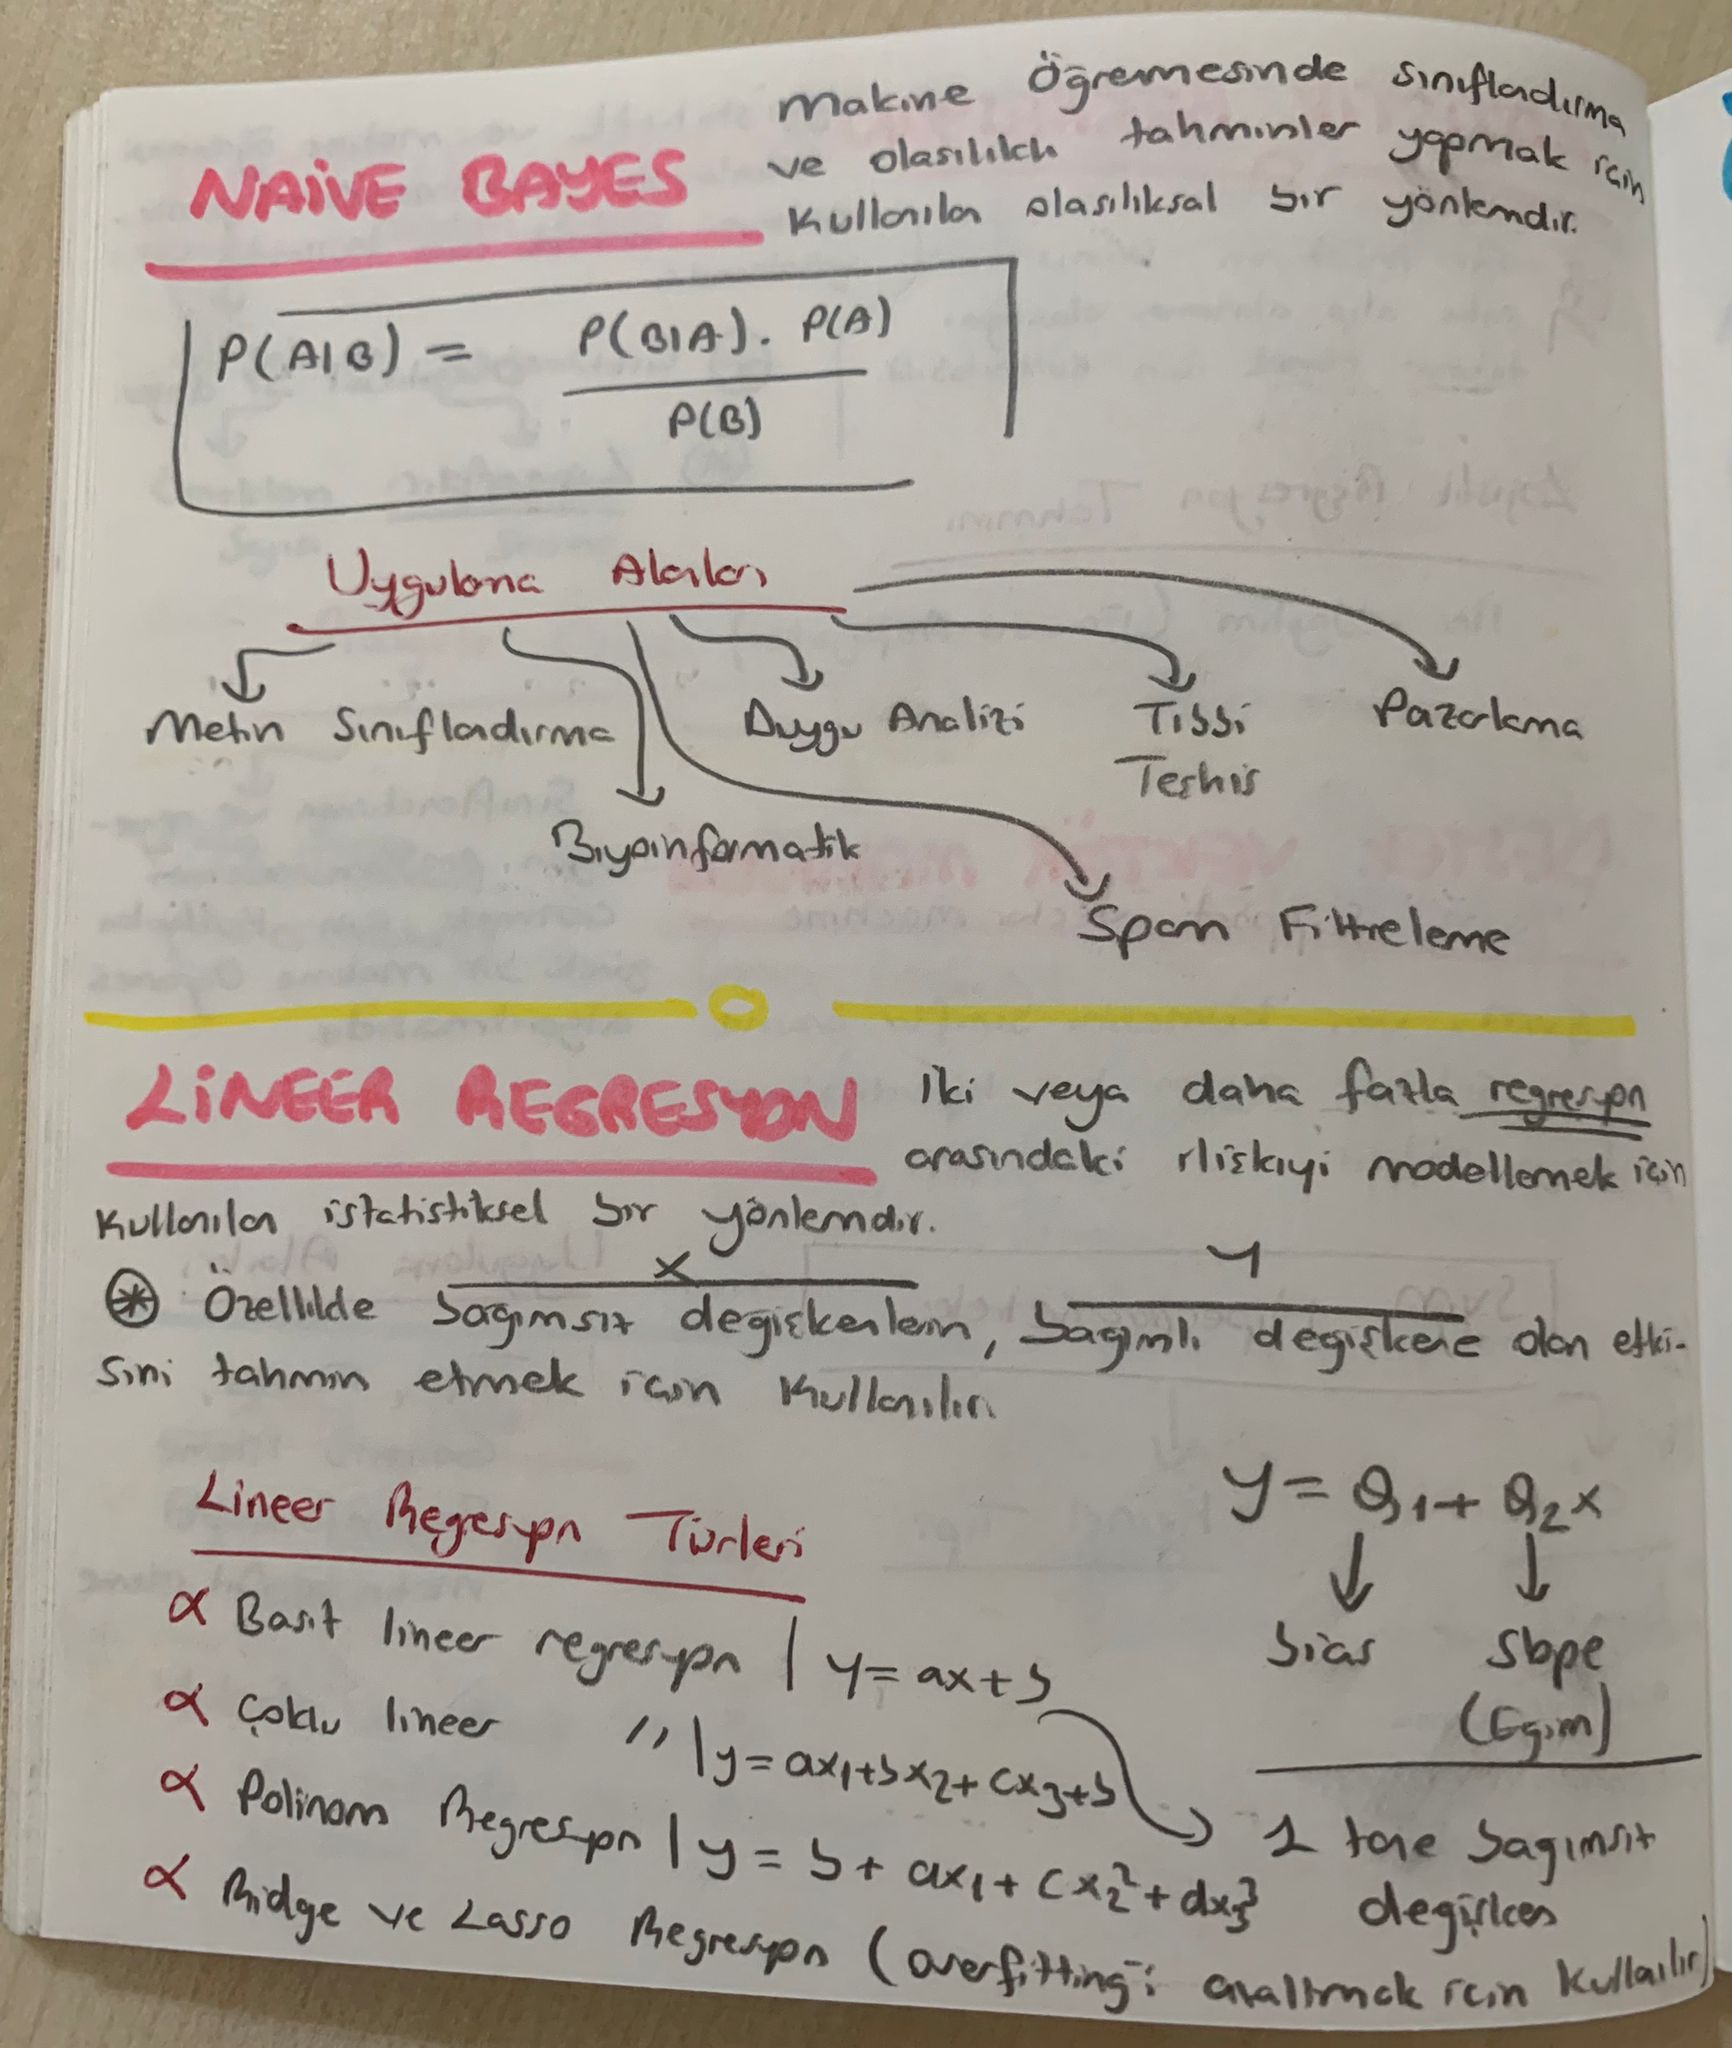 NAİVE BAYES
Makine Öğrenmesinde sınıflandırma
ve olasılıklı tahminler yapmak için
kullanılan olasılıksal bir yöntemdir.
P(A|B) = P(B|A). P(A)
P(B)
Uygulama Alanları
Metin Sınıflandırma
Duygu Analizi
Tıbbi
Teshis
Pazarlama
Biyoinformatik
Spam Filtreleme
LİNEER REGRESYON
iki veya daha fazla regresyon
arasındaki ilişkiyi modellemek için
kullanılan istatistiksel bir yöntemdir.
x y
Özellikle bagımsız degişkenlerin, bagımlı degişkene olan etki-
sini tahmin etmek için kullanılır.
Lineer Regresyon Türleri
y = Q1 + Q2x
bias
slope
(Egim)
∝ Basit lineer regresyon | y = ax+b
∝ Çoklu lineer " | y = ax1+bx2+cx3+b
∝ Polinom Regresyon | y = b + ax1 + cx2² + dx3³
1 tane bagımsız
degişken
∝ Ridge ve Lasso Regresyon (overfitting'i azaltmak için kullanılır)